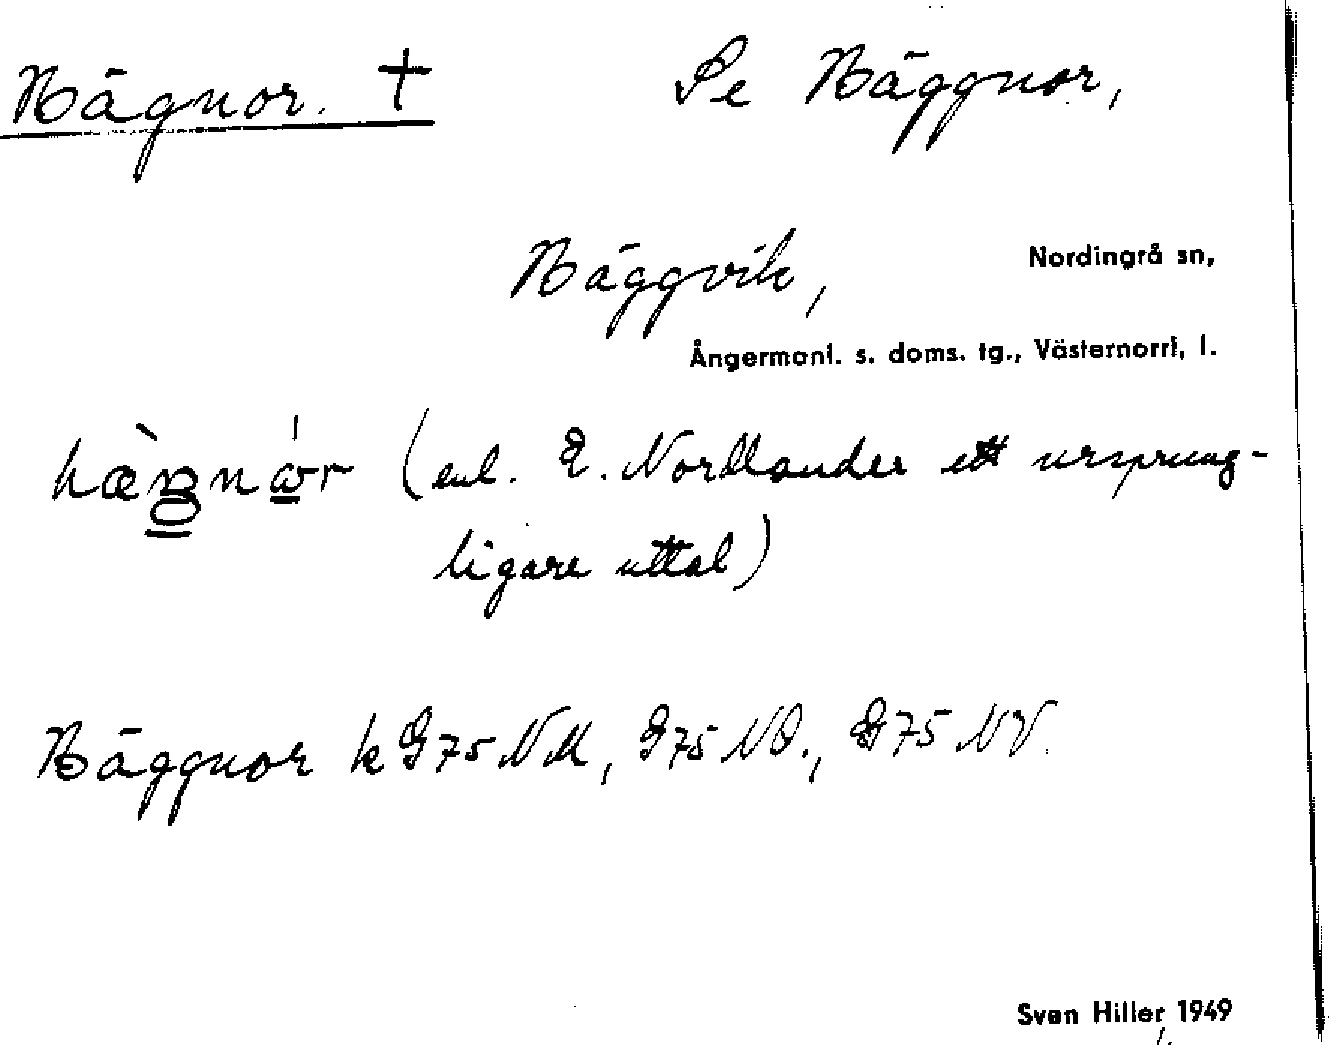 Hägnor. †
Se Häggnor,
Häggvik,
Nordingrå sn,
Ångermanl. s. doms. tg., Västernorrl, l.
(enl. E. Nordlander ett ursprung-
ligare uttal)
Häggnor k G75 NM, G75 NO., G75 NV.
Sven Hiller 1949